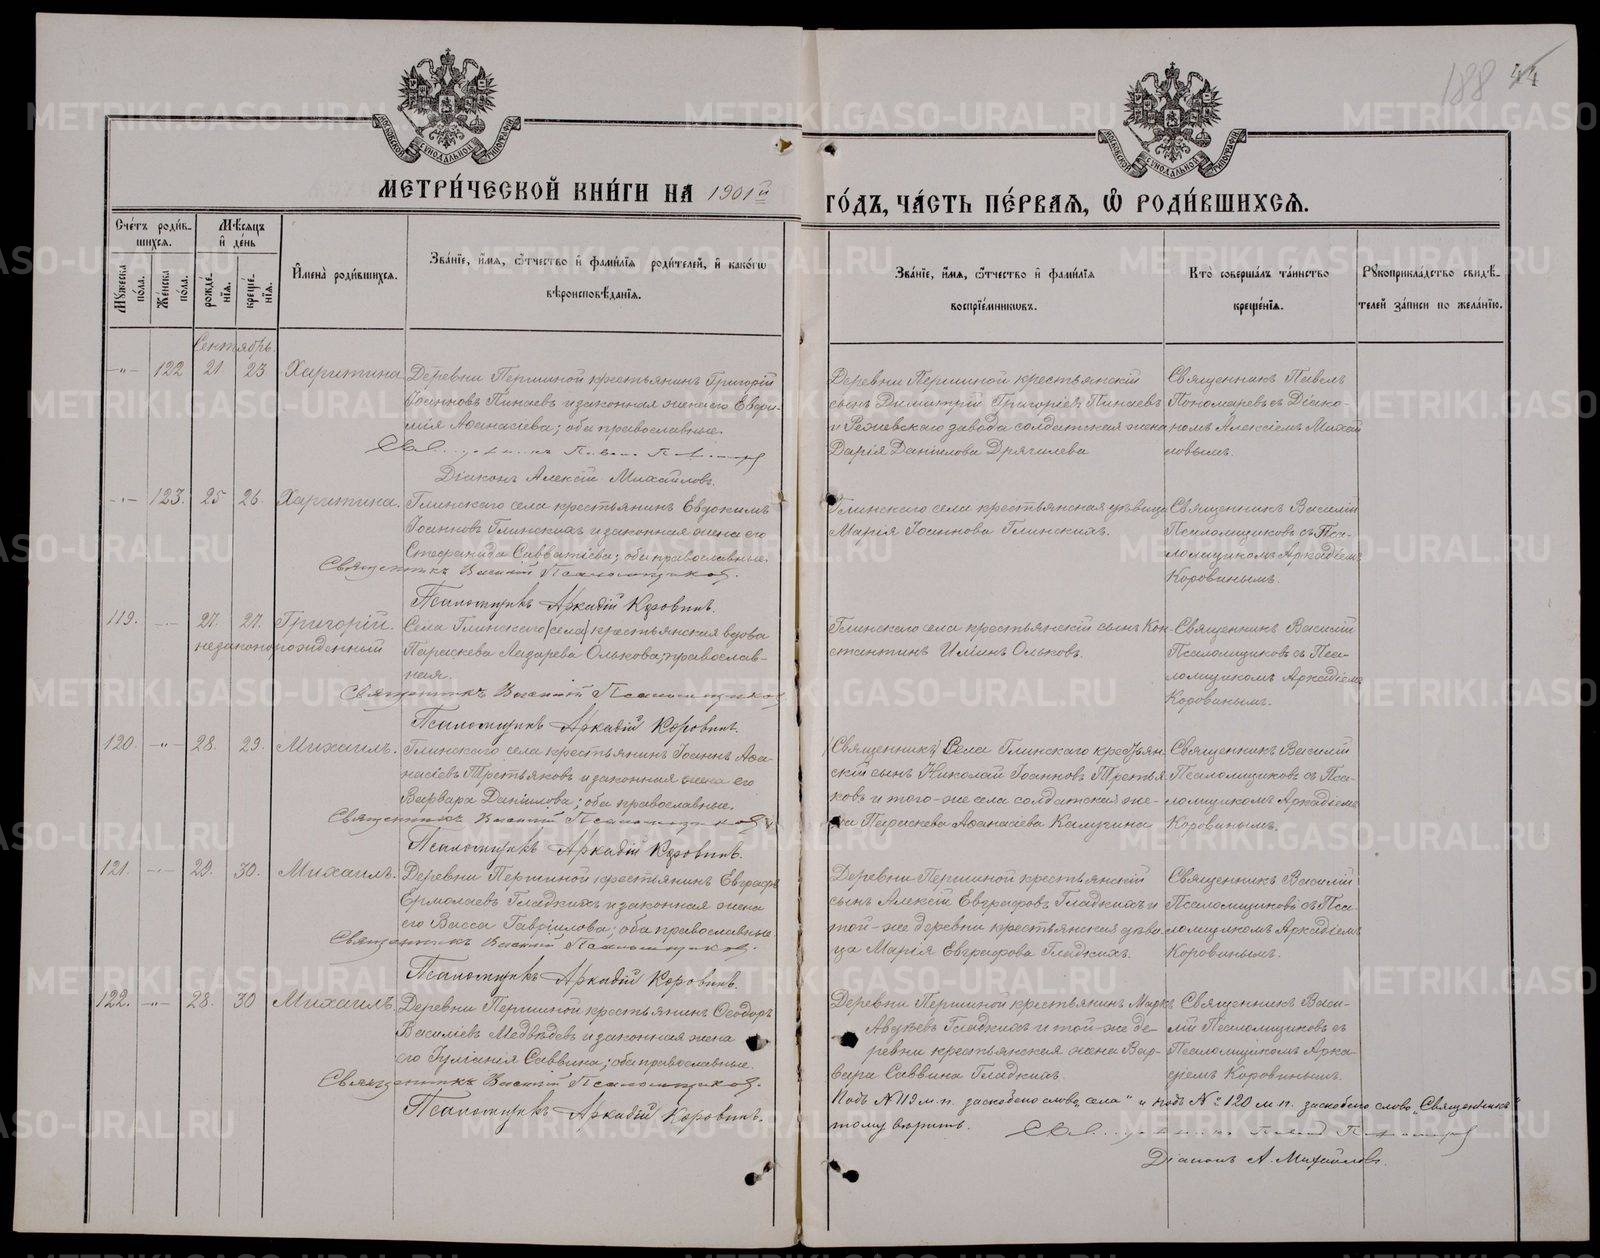 188 44
МОСКОВСКОЙ СУНОДАЛЬНОЙ ТИПОГРАФІИ
МОСКОВСКОЙ СУНОДАЛЬНОЙ ТИПОГРАФІИ
МЕТРИ́ЧЕСКОЙ КНИ́ГИ НА 1901й ГО́ДЪ, ЧА́СТЬ ПЕ́РВАѦ, Ѡ҆ РОДИ́ВШИХСѦ.
Сче́тъ роди́в-
шихсѧ.
Мꙋ́жеска по́ла.
Же́нска по́ла.
Мѣ́сѧцъ и҆ де́нь
рожде́-нїѧ.
креще́-нїѧ.
И҆мена̀ роди́вшихсѧ.
Зва́нїе, и҆́мѧ, ѻ҆́тчество и҆ фами́лїѧ роди́телей, и҆ како́гѡ
вѣроисповѣ́данїѧ.
Зва́нїе, и҆́мѧ, ѻ҆́тчество и҆ фами́лїѧ
воспрїе́мникѡвъ.
Кто̀ соверша́лъ та́инство
креще́нїѧ.
Рꙋкоприкла́дство свидѣ́-
телей за́писи по жела́нїю.
Сентябрь.
-"- 122 21 23 Харитина
Деревни Першиной крестьянинъ Григорій
Іоанновъ Пинаевъ и законная жена его Евфи-
мія Аѳанасіева; оба православные.
Діаконъ Алексій Михайловъ.
Деревни Першиной крестьянскій
сынъ Димитрій Григоріевъ Пинаевъ
и Режевскаго завода солдатская жена
Дарія Даніилова Дрягилева
Священникъ Павелъ
Пономаревъ съ Діако-
номъ Алексіемъ Михай
ловымъ.
-"- 123. 25 26. Харитина.
Глинскаго села крестьянинъ Евдокимъ
Іоанновъ Глинскихъ и законная жена его
Стефанида Савватіева; оба православные.
Священникъ Василій Псаломщиковъ.
Псаломщикъ Аркадій Коровинъ.
Глинскаго села крестьянская дѣвица
Марія Іоаннова Глинскихъ.
Священникъ Василій
Псаломщиковъ съ Пса-
ломщикомъ Аркадіемъ
Коровинымъ.
119. -"- 27. 27. Григорій.
незаконорожденный
Села Глинскаго (села) крестьянская вдова
Параскева Лазарева Олькова, православ-
ная.
Священникъ Василій Псаломщиковъ
Псаломщикъ Аркадій Коровинъ.
Глинскаго села крестьянскій сынъ Кон-
стантинъ Ольковъ.
Священникъ Василій
Псаломщиковъ съ Пса-
ломщикомъ Аркадіемъ
Коровинымъ.
120. -"- 28. 29. Михаилъ.
Глинскаго села крестьянинъ Іоаннъ Аѳа-
насіевъ Третьяковъ и законная жена его
Варвара Даніилова; оба православные.
Священникъ Василій Псаломщиковъ
Псаломщикъ Аркадій Коровинъ.
(Священникъ) Села Глинскаго крестьян-
скій сынъ Николай Іоанновъ Третья-
ковъ и того-же села солдатская же-
на Параскева Аѳанасіева Калугина
Священникъ Василій
Псаломщиковъ съ Пса-
ломщикомъ Аркадіемъ
Коровинымъ.
121. -"- 29. 30. Михаилъ.
Деревни Першиной крестьянинъ Евграфъ
Ермолаевъ Гладкихъ и законная жена
его Васса Гавріилова; оба православные.
Священникъ Василій Псаломщиковъ.
Псаломщикъ Аркадій Коровинъ.
Деревни Першиной крестьянскій
сынъ Алексій Евграфовъ Гладкихъ и
той-же деревни крестьянская дѣви-
ца Марія Евграфова Гладкихъ.
Священникъ Василій
Псаломщиковъ съ Пса-
ломщикомъ Аркадіемъ
Коровинымъ.
122. -"- 28. 30 Михаилъ.
Деревни Першиной крестьянинъ Ѳеодоръ
Василіевъ Медвѣдевъ и законная жена
его Іуліанія Саввина; оба православные.
Священникъ Василій Псаломщиковъ.
Псаломщикъ Аркадій Коровинъ.
Деревни Першиной крестьянинъ Маркъ
Гладкихъ и той-же де-
ревни крестьянская жена Вар-
вара Саввина Гладкихъ.
Священникъ Васи-
лій Псаломщиковъ съ
Псаломщикомъ Арка-
діемъ Коровинымъ.
Подъ №119 м.п. заскоблено слово „села" и подъ №120 м.п. заскоблено слово „Священникъ"
тому вѣрить.
Діаконъ А. Михайловъ.
METRIKI.GASO-URAL.RU